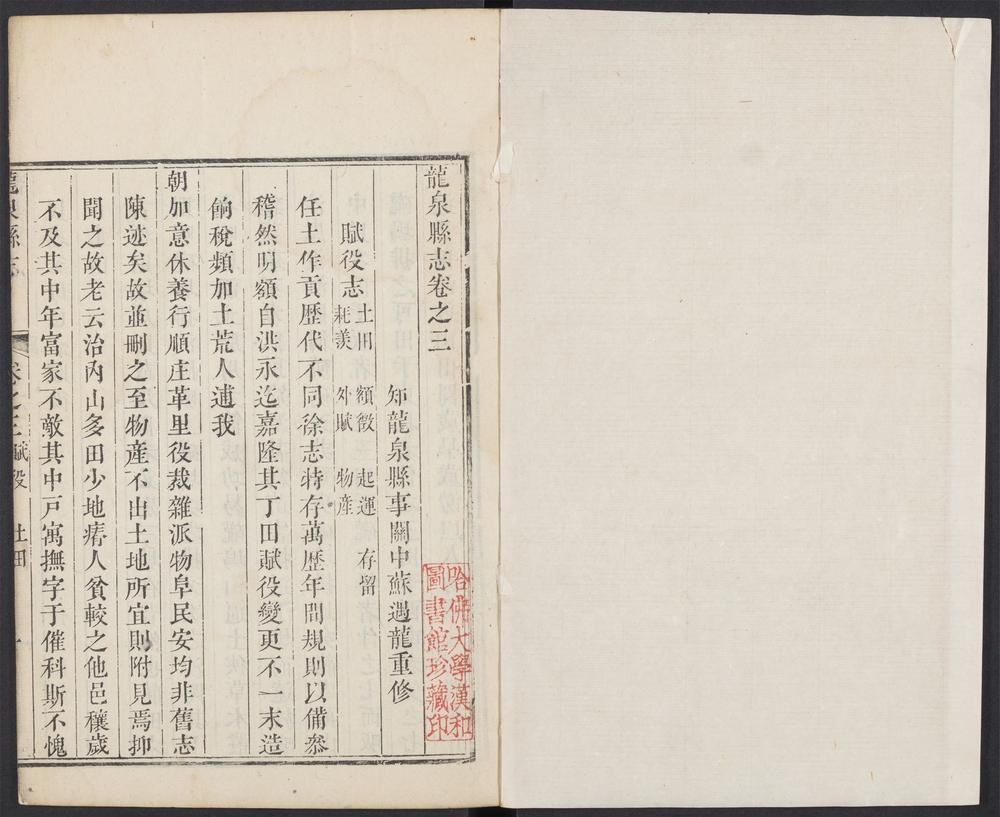 龍泉縣志卷之三
知龍泉縣事關中蘇遇龍重修
賦役志 土田 額徵 起運 存留
耗羡 外賦 物産
任土作貢歷代不同徐志特存萬歷年間規則以備叅
稽然明額自洪永迄嘉隆其丁田賦役變更不一末造
餉稅頻加土荒人逋我
朝加意休養行順庄革里役裁雜派物阜民安均非舊志
陳迹矣故並刪之至物產不出土地所宜則附見焉抑
聞之故老云治內山多田少地瘠人貧較之他邑穰歲
不及其中年富家不敵其中戸寓撫字于催科斯不愧
龍泉縣志 卷之三 賦役 土田 一
哈佛大學漢和
圖書館珍藏印